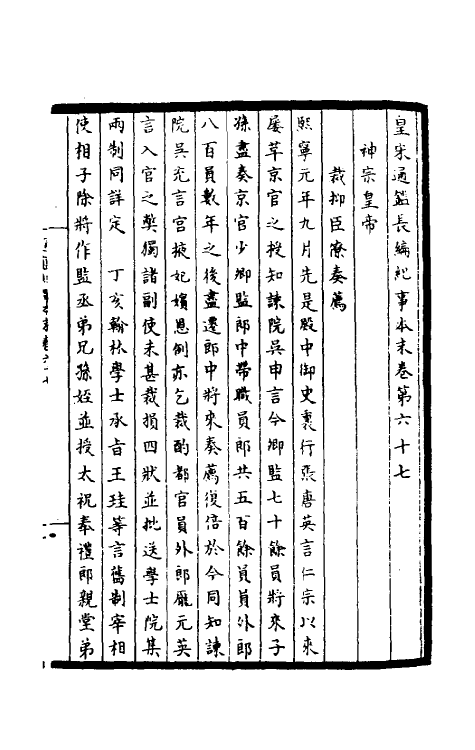 皇宋通鑑長編紀事本末卷第六十七
神宗皇帝
裁抑臣寮奏薦
熙寧元年九月先是殿中御史裏行張唐英言仁宗以來
屢革京官之授知諫院吳申言今卿監七十餘員將來子
孫盡奏京官少卿監郎中帶職員郎共五百餘員員外郎
八百員數年之後盡遷郎中將來奏薦復倍於今同知諫
院吳充言宮掖妃嬪恩例亦乞裁酌都官員外郎龐元英
言入官之獘獨諸副使未甚裁損四狀並批送學士院集
兩制同詳定 丁亥翰林學士承旨王珪等言舊制宰相
使相子除將作監丞弟兄孫姪並授太祝奉禮郎親堂弟